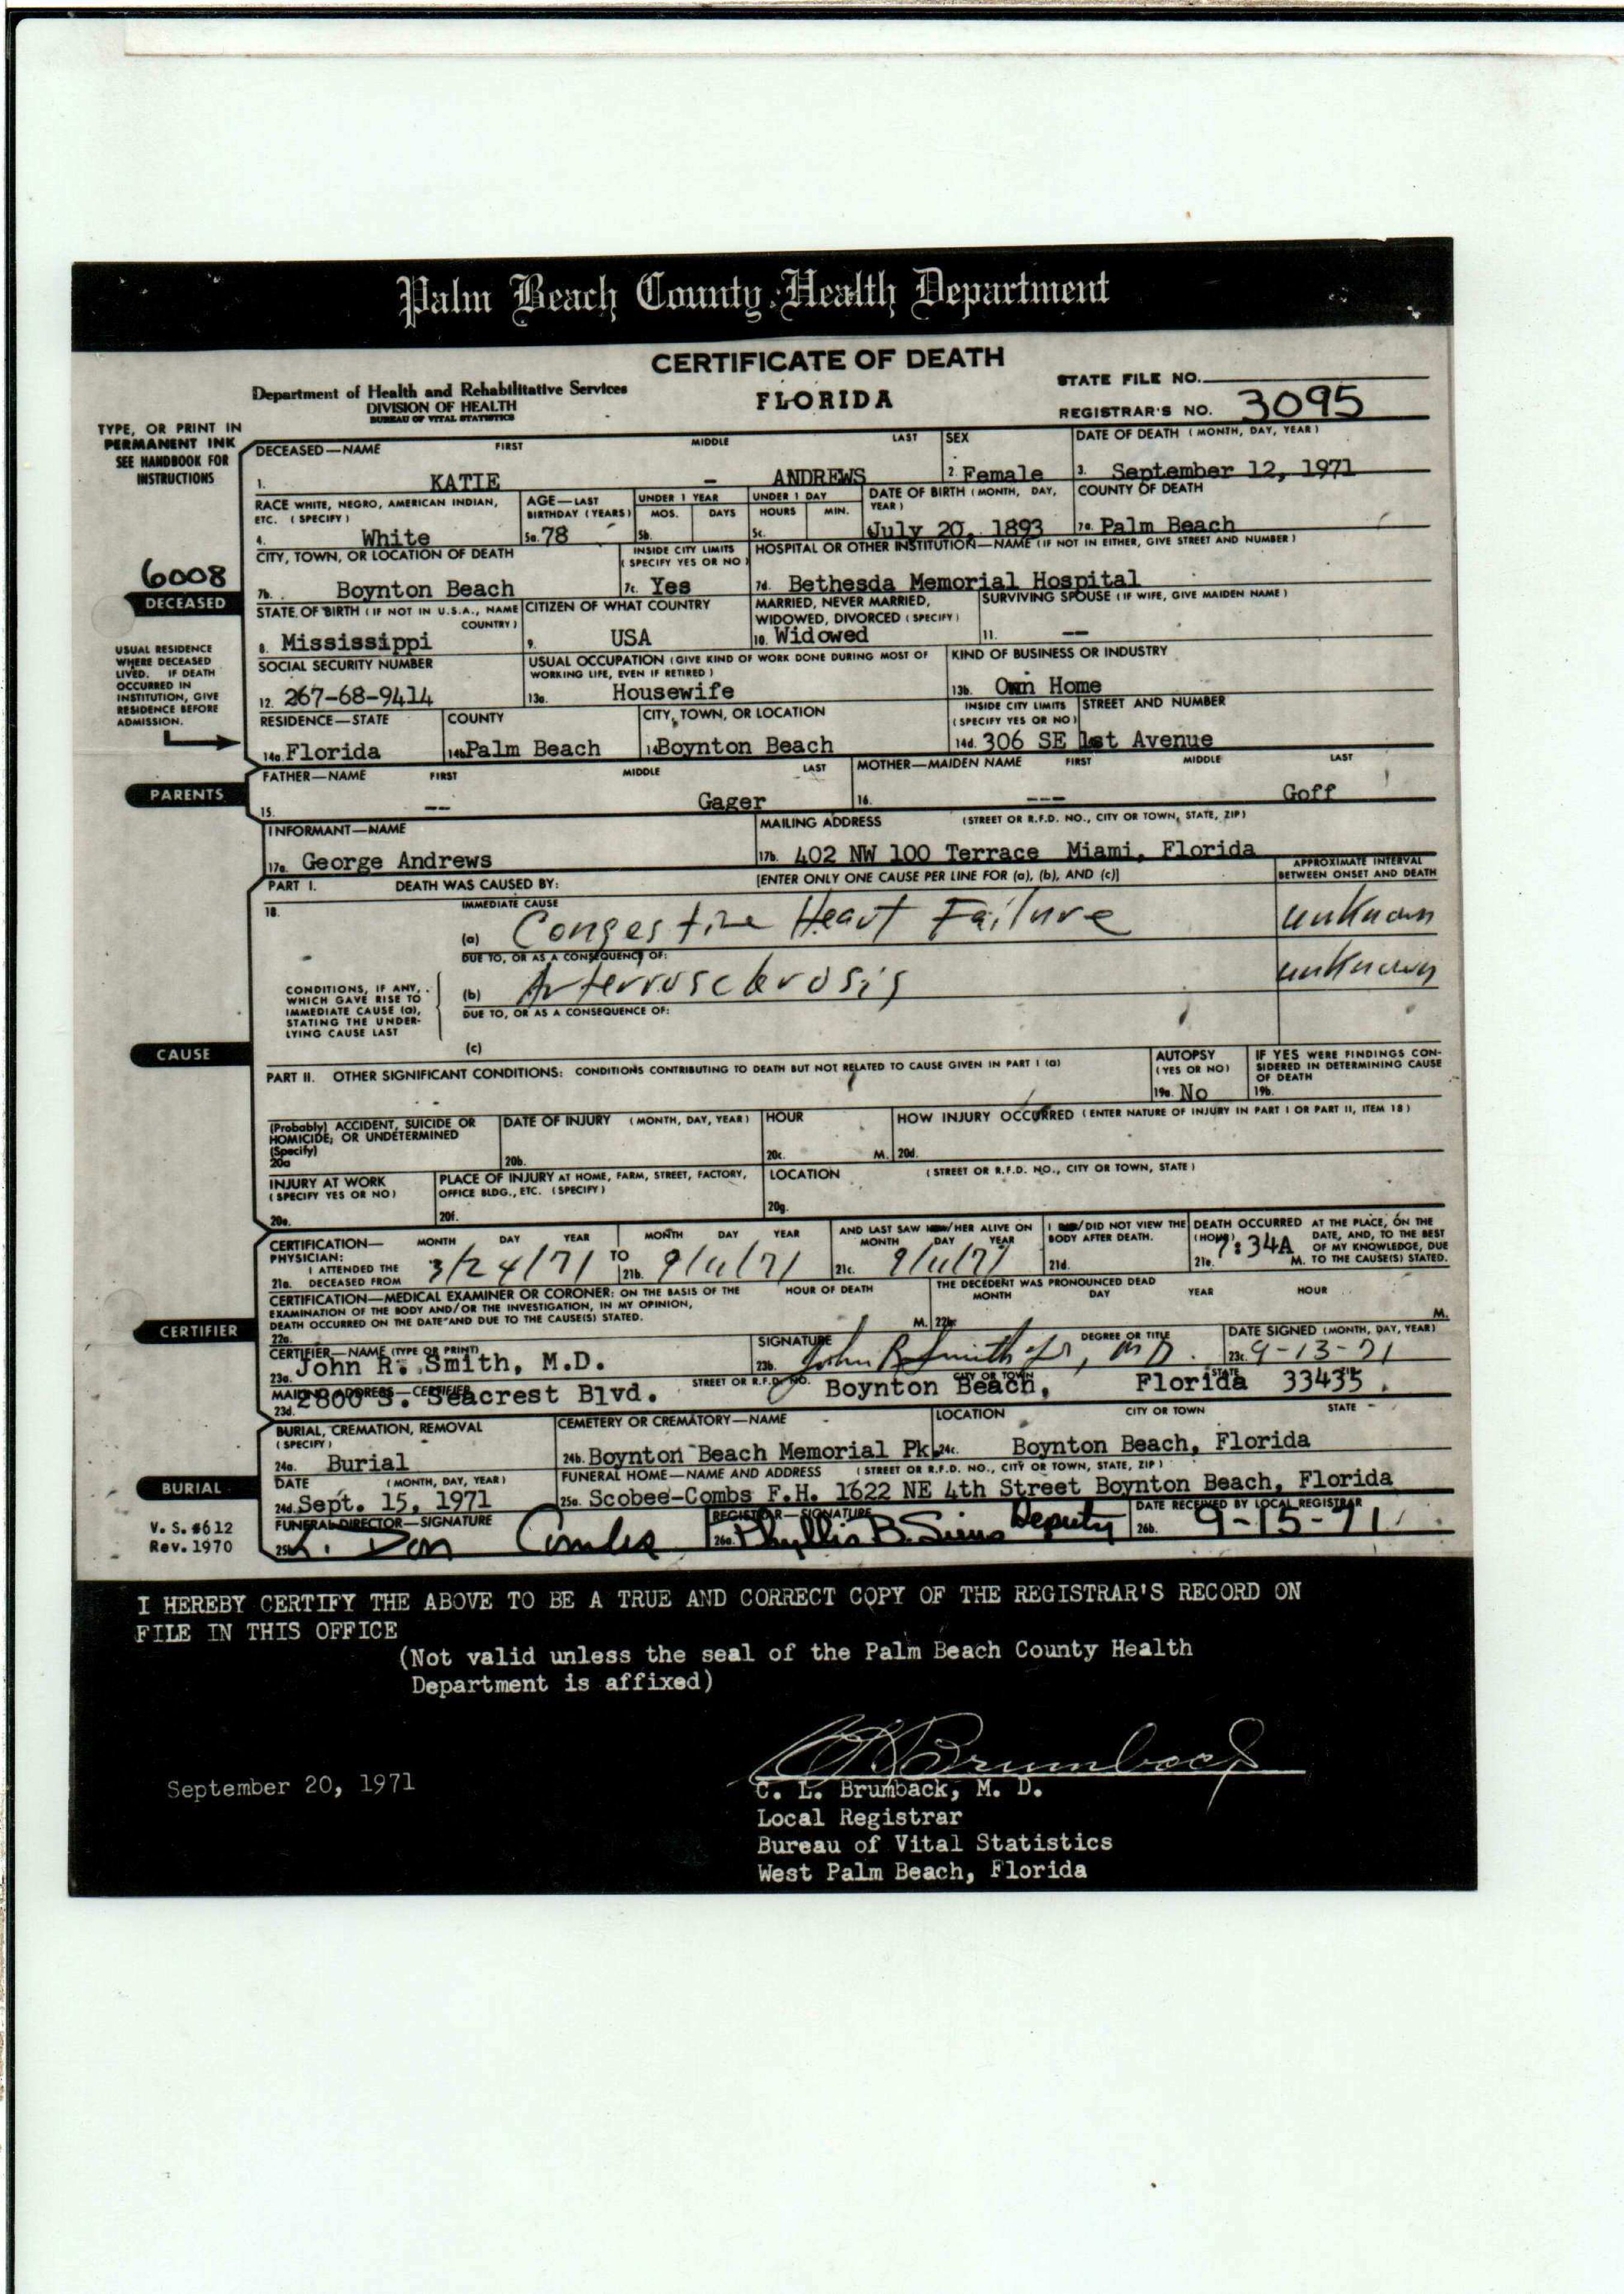 Palm Beach County Health Department
CERTIFICATE OF DEATH
FLORIDA
Department of Health and Rehabilitative Services
DIVISION OF HEALTH
BUREAU OF VITAL STATISTICS
STATE FILE NO.
REGISTRAR'S NO. 3095
TYPE, OR PRINT IN
PERMANENT INK
SEE HANDBOOK FOR
INSTRUCTIONS
DECEASED—NAME FIRST MIDDLE LAST SEX DATE OF DEATH (MONTH, DAY, YEAR)
1. KATIE – ANDREWS 2. Female 3. September 12, 1971
RACE WHITE, NEGRO, AMERICAN INDIAN, ETC. (SPECIFY) AGE—LAST BIRTHDAY (YEARS) UNDER 1 YEAR MOS. DAYS UNDER 1 DAY HOURS MIN. DATE OF BIRTH (MONTH, DAY, YEAR) COUNTY OF DEATH
4. White 5a. 78 5b. 5c. July 20, 1893 7a. Palm Beach
CITY, TOWN, OR LOCATION OF DEATH INSIDE CITY LIMITS (SPECIFY YES OR NO) HOSPITAL OR OTHER INSTITUTION—NAME (IF NOT IN EITHER, GIVE STREET AND NUMBER)
6008
DECEASED
7b. Boynton Beach 7c. Yes 7d. Bethesda Memorial Hospital
STATE OF BIRTH (IF NOT IN U.S.A., NAME COUNTRY) CITIZEN OF WHAT COUNTRY MARRIED, NEVER MARRIED, WIDOWED, DIVORCED (SPECIFY) SURVIVING SPOUSE (IF WIFE, GIVE MAIDEN NAME)
8. Mississippi 9. USA 10. Widowed 11. --
USUAL RESIDENCE
WHERE DECEASED
LIVED. IF DEATH
OCCURRED IN
INSTITUTION, GIVE
RESIDENCE BEFORE
ADMISSION.
SOCIAL SECURITY NUMBER USUAL OCCUPATION (GIVE KIND OF WORK DONE DURING MOST OF WORKING LIFE, EVEN IF RETIRED) KIND OF BUSINESS OR INDUSTRY
12. 267-68-9414 13a. Housewife 13b. Own Home
RESIDENCE—STATE COUNTY CITY, TOWN, OR LOCATION INSIDE CITY LIMITS (SPECIFY YES OR NO) STREET AND NUMBER
14a. Florida 14b. Palm Beach 14 Boynton Beach 14d. 306 SE 1st Avenue
PARENTS
FATHER—NAME FIRST MIDDLE LAST MOTHER—MAIDEN NAME FIRST MIDDLE LAST
15. -- Gager 16. --- Goff
INFORMANT—NAME MAILING ADDRESS (STREET OR R.F.D. NO., CITY OR TOWN, STATE, ZIP)
17a. George Andrews 17b. 402 NW 100 Terrace Miami, Florida
PART I. DEATH WAS CAUSED BY: [ENTER ONLY ONE CAUSE PER LINE FOR (a), (b), AND (c)] APPROXIMATE INTERVAL BETWEEN ONSET AND DEATH
18. IMMEDIATE CAUSE
(a) Congestive Heart Failure unknown
DUE TO, OR AS A CONSEQUENCE OF:
CONDITIONS, IF ANY,
WHICH GAVE RISE TO
IMMEDIATE CAUSE (a),
STATING THE UNDER-
LYING CAUSE LAST
(b) Arteriosclerosis unknown
DUE TO, OR AS A CONSEQUENCE OF:
(c)
CAUSE
PART II. OTHER SIGNIFICANT CONDITIONS: CONDITIONS CONTRIBUTING TO DEATH BUT NOT RELATED TO CAUSE GIVEN IN PART I (a)
AUTOPSY (YES OR NO) IF YES WERE FINDINGS CONSIDERED IN DETERMINING CAUSE OF DEATH
19a. No 19b.
(Probably) ACCIDENT, SUICIDE OR HOMICIDE; OR UNDETERMINED (Specify) DATE OF INJURY (MONTH, DAY, YEAR) HOUR HOW INJURY OCCURRED (ENTER NATURE OF INJURY IN PART I OR PART II, ITEM 18)
20a 20b. 20c. M. 20d.
INJURY AT WORK (SPECIFY YES OR NO) PLACE OF INJURY AT HOME, FARM, STREET, FACTORY, OFFICE BLDG., ETC. (SPECIFY) LOCATION (STREET OR R.F.D. NO., CITY OR TOWN, STATE)
20e. 20f. 20g.
CERTIFICATION—PHYSICIAN: I ATTENDED THE DECEASED FROM MONTH DAY YEAR TO MONTH DAY YEAR AND LAST SAW /HER ALIVE ON MONTH DAY YEAR I /DID NOT VIEW THE BODY AFTER DEATH. DEATH OCCURRED (HOUR) AT THE PLACE, ON THE DATE, AND, TO THE BEST OF MY KNOWLEDGE, DUE TO THE CAUSE(S) STATED.
21a. 3/24/71 21b. 9/11/71 21c. 9/11/71 21d. 21e. 7:34A M.
CERTIFICATION—MEDICAL EXAMINER OR CORONER: ON THE BASIS OF THE EXAMINATION OF THE BODY AND/OR THE INVESTIGATION, IN MY OPINION, DEATH OCCURRED ON THE DATE AND DUE TO THE CAUSE(S) STATED. HOUR OF DEATH THE DECEDENT WAS PRONOUNCED DEAD MONTH DAY YEAR HOUR
22a. M. 22b. M.
CERTIFIER
CERTIFIER—NAME (TYPE OR PRINT) SIGNATURE DEGREE OR TITLE DATE SIGNED (MONTH, DAY, YEAR)
23a. John R. Smith, M.D. 23b. John R Smith Jr, MD. 23c. 9-13-71
MAILING ADDRESS—CERTIFIER STREET OR R.F.D. NO. CITY OR TOWN STATE ZIP
23d. 2800 S. Seacrest Blvd. Boynton Beach, Florida 33435
BURIAL, CREMATION, REMOVAL (SPECIFY) CEMETERY OR CREMATORY—NAME LOCATION CITY OR TOWN STATE
24a. Burial 24b. Boynton Beach Memorial Pk. 24c. Boynton Beach, Florida
BURIAL
DATE (MONTH, DAY, YEAR) FUNERAL HOME—NAME AND ADDRESS (STREET OR R.F.D. NO., CITY OR TOWN, STATE, ZIP)
24d Sept. 15, 1971 25a. Scobee-Combs F.H. 1622 NE 4th Street Boynton Beach, Florida
FUNERAL DIRECTOR—SIGNATURE REGISTRAR—SIGNATURE DATE RECEIVED BY LOCAL REGISTRAR
25b. Don Combs 26a. Phyllis B. Sims Deputy 26b. 9-15-71
V. S. #612
Rev. 1970
I HEREBY CERTIFY THE ABOVE TO BE A TRUE AND CORRECT COPY OF THE REGISTRAR'S RECORD ON
FILE IN THIS OFFICE
(Not valid unless the seal of the Palm Beach County Health
Department is affixed)
C L Brumback
September 20, 1971
C. L. Brumback, M. D.
Local Registrar
Bureau of Vital Statistics
West Palm Beach, Florida